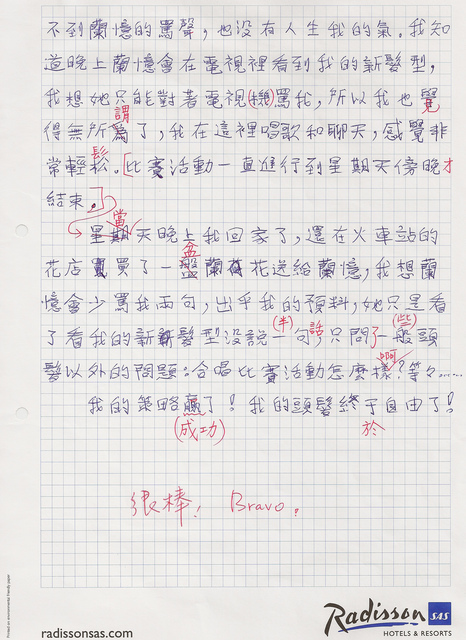 不到蘭憶的罵聲，也没有人生我的氣。我知
道晚上蘭憶會在電視裡看到我的新髮型，
我想她只能對著電視(機)罵我，所以我也覺
得無所為了，我在這裡唱歌和聊天，感覺非
謂
常輕松。[比賽活動一直進行到星期天傍晚才
鬆
結束。]
當
星期天晚上我回家了，還在火車站的
花店買了一盤蘭花送給蘭憶，我想蘭
盆
憶會少罵我兩句，出乎我的預料，她只是看
了看我的新髮型没說一句話，只問了一般頭
(半)
(些)
髮以外的問題：合唱比賽活動怎麼樣？等々……
啊
我的策略贏了！我的頭髮終于自由了！
(成功)
於
很棒！ Bravo.
Printed on environmental friendly paper
radissonsas.com
Radisson SAS
HOTELS & RESORTS